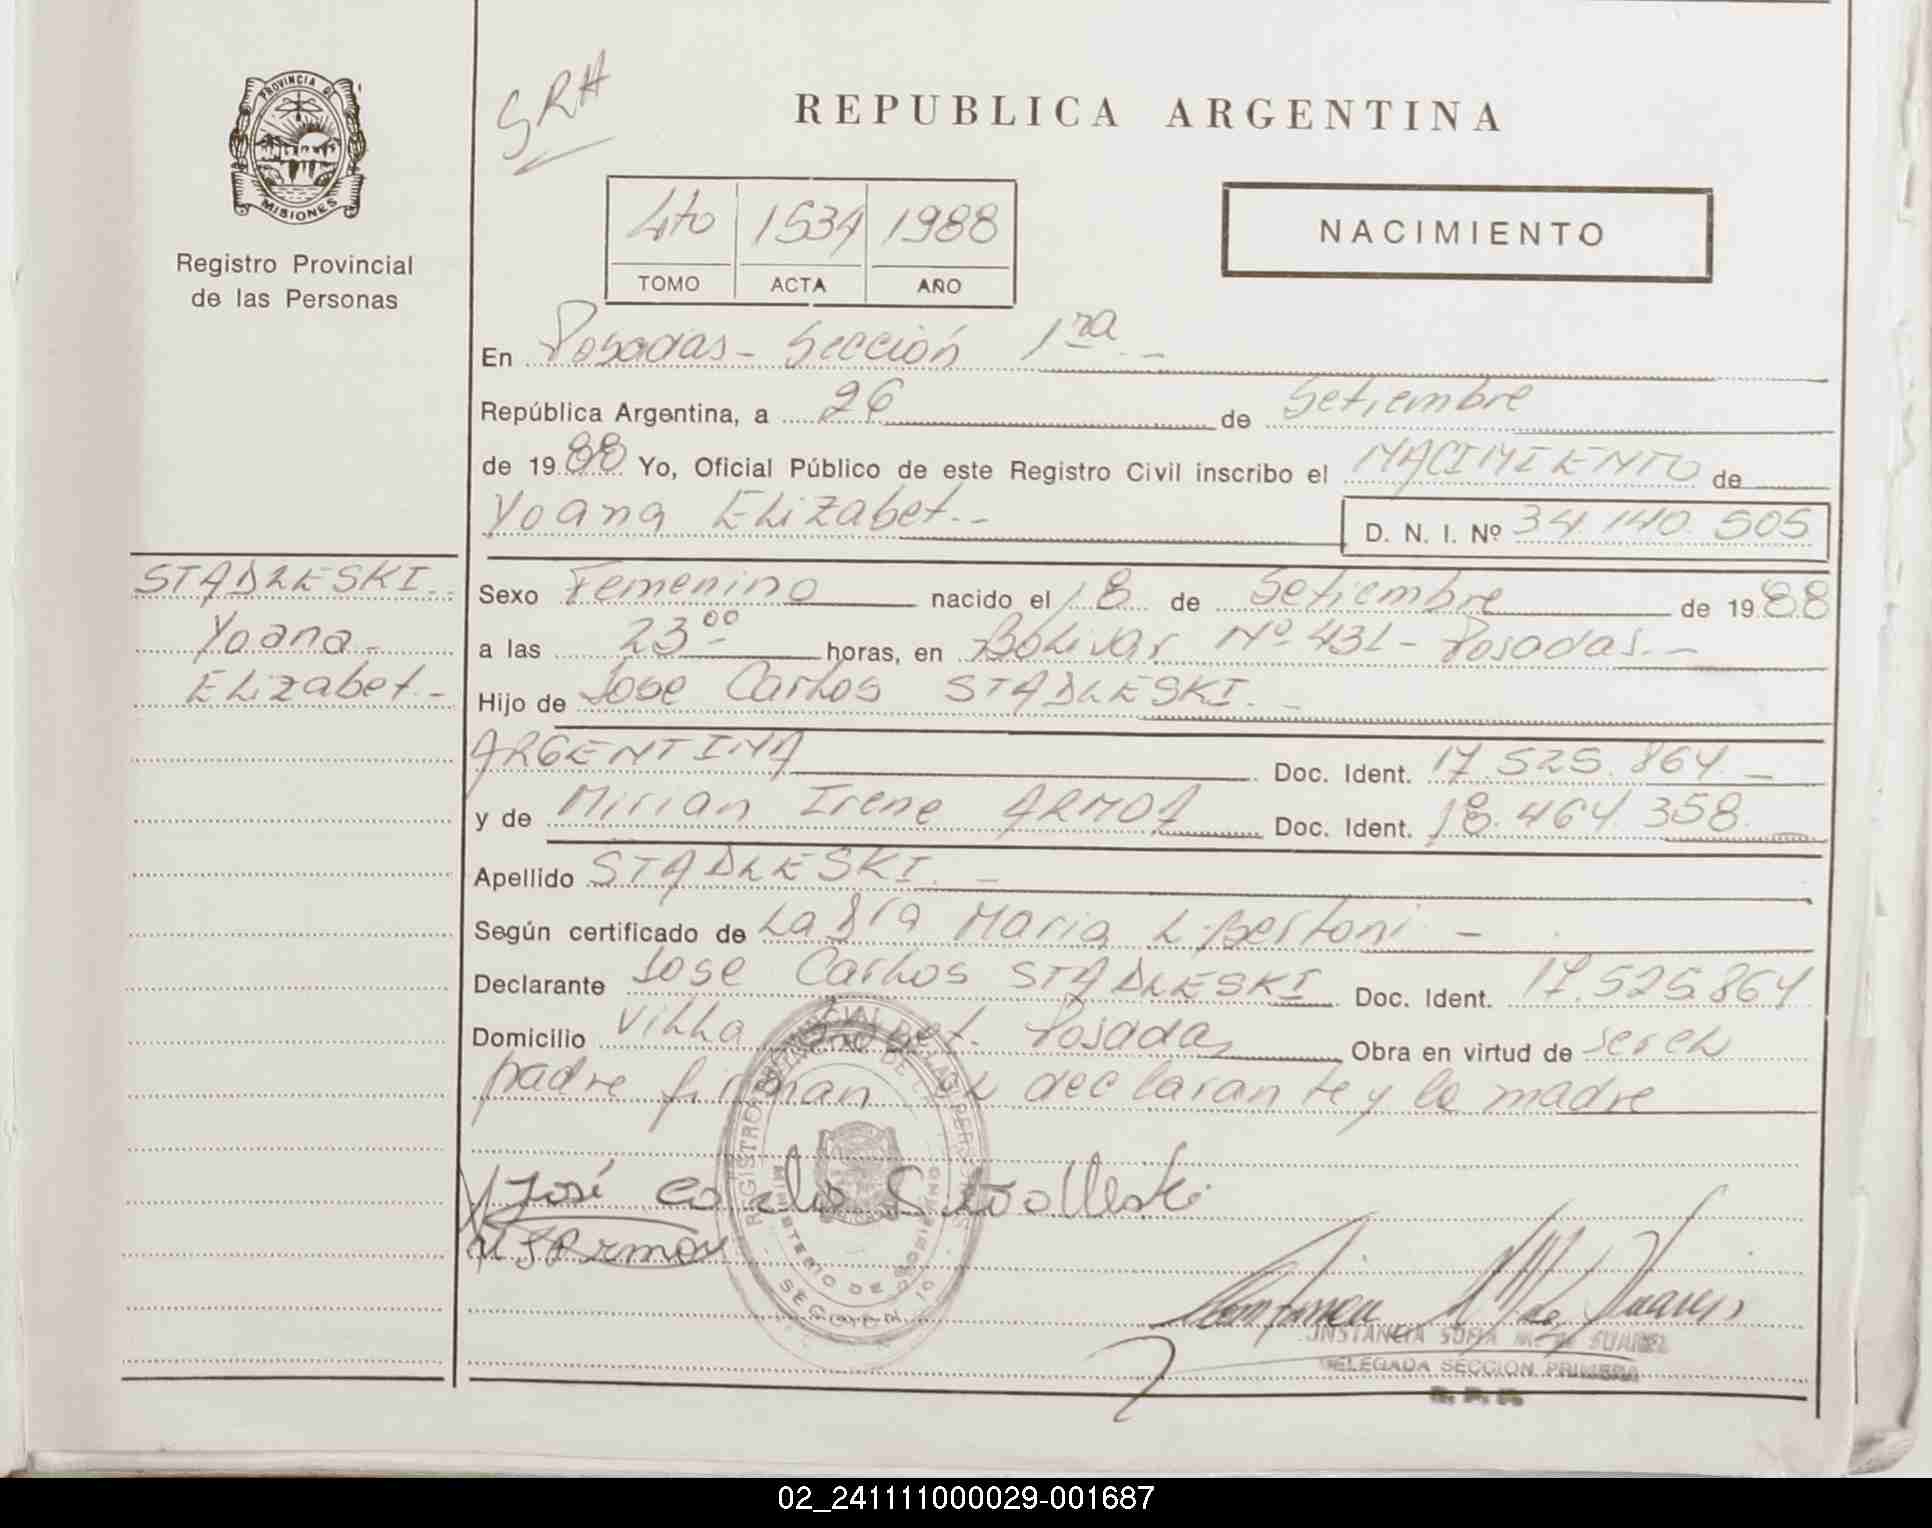 PROVINCIA DE
MISIONES
Registro Provincial
de las Personas
SRH
REPUBLICA ARGENTINA
4to 1534 1988
TOMO ACTA AÑO
NACIMIENTO
En Posadas - Sección 1ra -
República Argentina, a 26 de Setiembre
de 1988 Yo, Oficial Público de este Registro Civil inscribo el NACIMIENTO de
Yoana Elizabet.-
D. N. I. Nº 34.140.505
STADLESKI.-
Yoana -
Elizabet.-
Sexo Femenino nacido el 18 de Setiembre de 1988
a las 23 00 horas, en Bolivar Nº 431 - Posadas.-
Hijo de Jose Carlos STADLESKI. -
ARGENTINA Doc. Ident. 17.525.864 -
y de Mirian Irene ARMOA Doc. Ident. 18.464.358
Apellido STADLESKI. -
Según certificado de La Dra Maria L. Bertoni -
Declarante Jose Carlos STADLESKI Doc. Ident. 17.525.864
Domicilio Villa Posadas Obra en virtud de ser el
padre firman el declarante y la madre
REGISTRO PROVINCIAL DE LAS PERSONAS
MINISTERIO DE GOBIERNO
SECCION
José Carlos Stadleski
SOFIA SUAREZ
DELEGADA SECCION PRIMERA
02_241111000029-001687